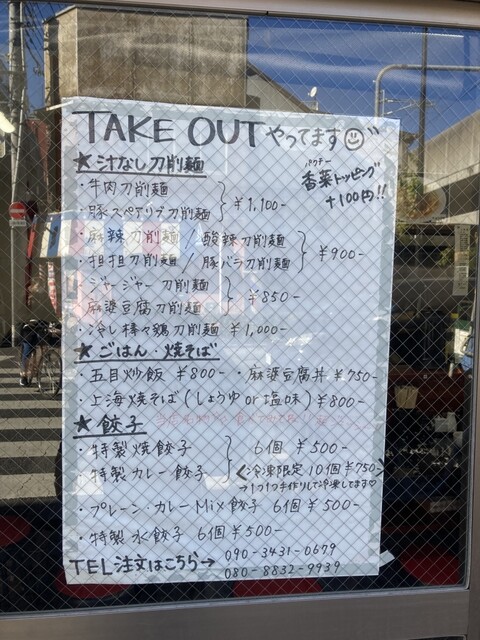 TAKE OUT やってます
★汁なし刀削麺
パクチー
香菜トッピング
+100円!!
・牛肉刀削麺
・豚スペアリブ刀削麺
¥1,100-
・麻辣刀削麺 / 酸辣刀削麺
・担担刀削麺 / 豚バラ刀削麺
¥900-
・ジャージャー刀削麺
麻婆豆腐刀削麺
¥850-
・冷し棒々鶏刀削麺 ¥1,000-
★ごはん・焼そば
・五目炒飯 ¥800- ・麻婆豆腐丼 ¥750-
・上海焼そば(しょうゆ or 塩味) ¥800-
★餃子
・特製焼餃子
・特製カレー餃子
6個 ¥500-
<冷凍限定 10個 ¥750->
→1つ1つ手作りして冷凍してます♡
・プレーン・カレーMix餃子 6個 ¥500-
・特製水餃子 6個 ¥500-
TEL注文はこちら→ 090-3431-0679
080-8832-9939